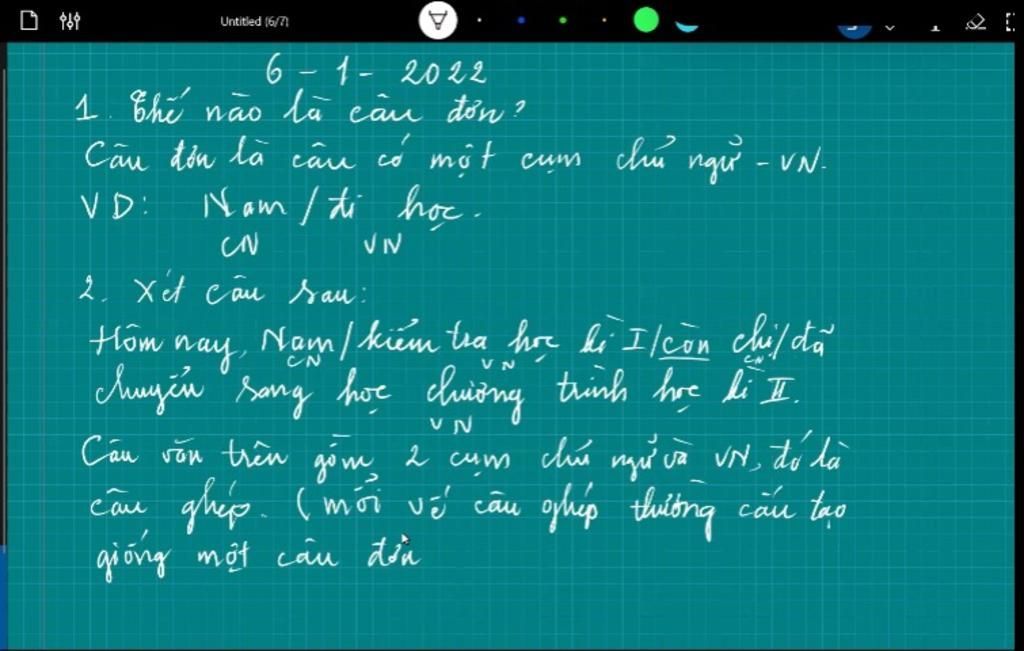 Untitled (6/7)
6 - 1 - 2022
1. Thế nào là câu đơn?
Câu đơn là câu có một cụm chủ ngữ - VN.
VD: Nam / đi học.
CN VN
2. Xét câu sau:
Hôm nay, Nam / kiểm tra học kì I / còn chị / đã
CN VN CN
chuyển sang học chương trình học kì II.
VN
Câu văn trên gồm 2 cụm chủ ngữ và VN, đó là
câu ghép. (mỗi vế câu ghép thường cấu tạo
giống một câu đơn